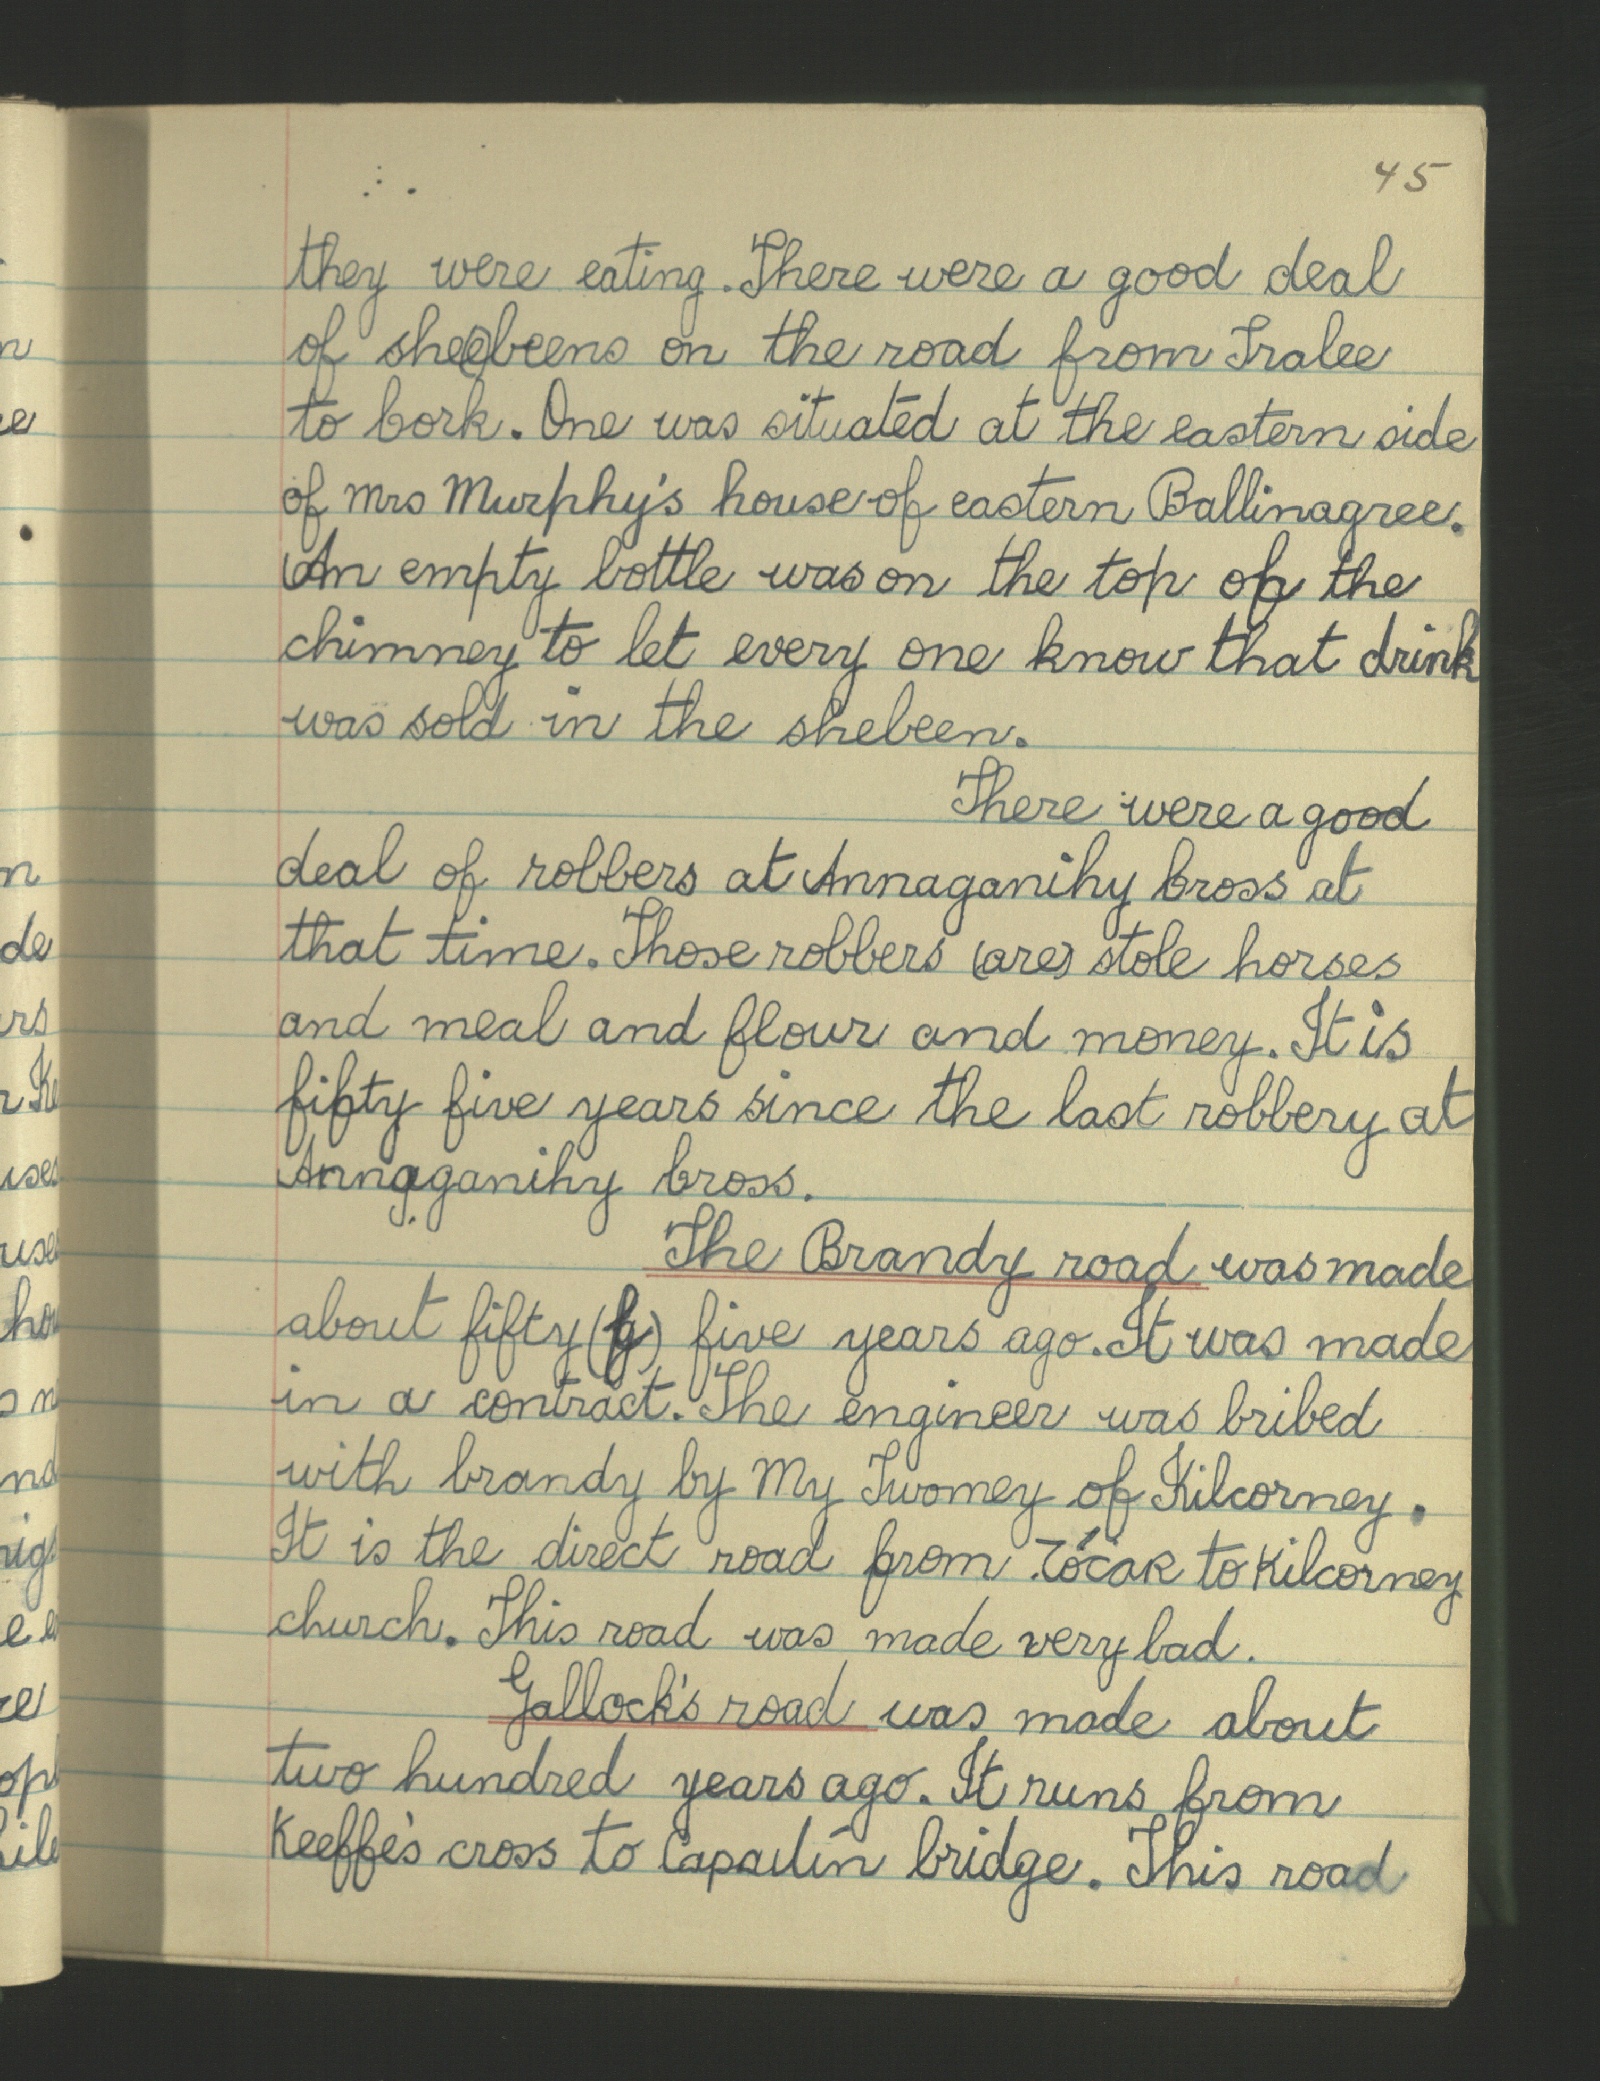 45
they were eating. There were a good deal
of she(e)beens on the road from Tralee
to Cork. One was situated at the eastern side
of Mrs Murphy's house of eastern Ballinagree.
An empty bottle was on the top of the
chimney to let every one know that drink
was sold in the shebeen.
There were a good
deal of robbers at Annaganihy Cross at
that time. Those robbers (are) stole horses
and meal and flour and money. It is
fifty five years since the last robbery at
Annaganihy Cross.
The Brandy road was made
about fifty (f) five years ago. It was made
in a contract. The engineer was bribed
with brandy by My Twomey of Kilcorney.
It is the direct road from Tócar to Kilcorney
church. This road was made very bad.
Gallock's road was made about
two hundred years ago. It runs from
Keeffe's cross to bridge. This road